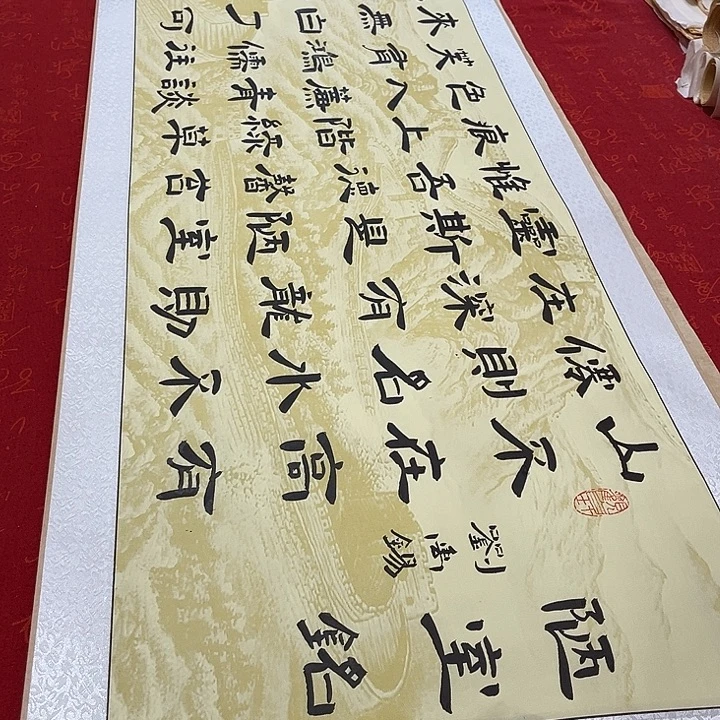 陋室銘
劉禹錫
山不在高有
僊則名水不
在深有龍則
靈斯是陋室
惟吾德馨苔
痕上階綠草
色入簾青談
笑有鴻儒往
來無白丁可